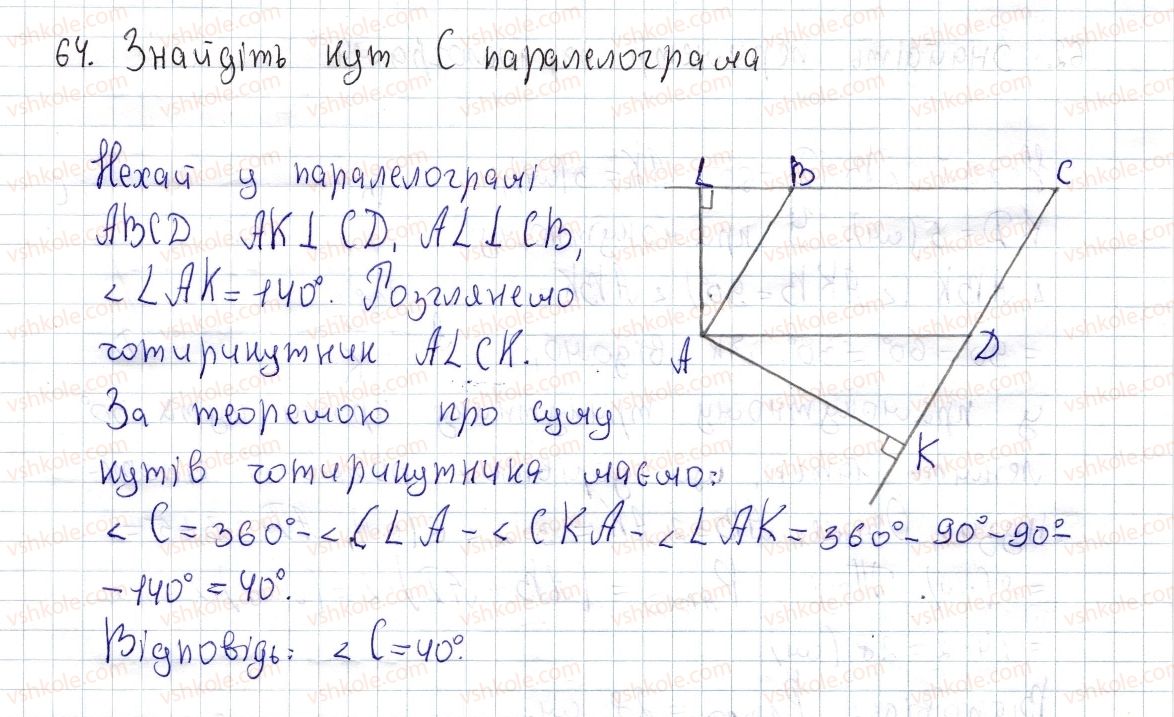 64. Знайдіть кут C паралелограма
Нехай у паралелограмі
ABCD AK⊥CD, AL⊥CB,
∠LAK=140°. Розглянемо
чотирикутник ALCK.
За теоремою про суму
кутів чотирикутника маємо:
∠C=360°-∠CLA-∠CKA-∠LAK=360°-90°-90°-
-140°=40°.
Відповідь: ∠C=40°.
L B C
A D
K
vshkole.com